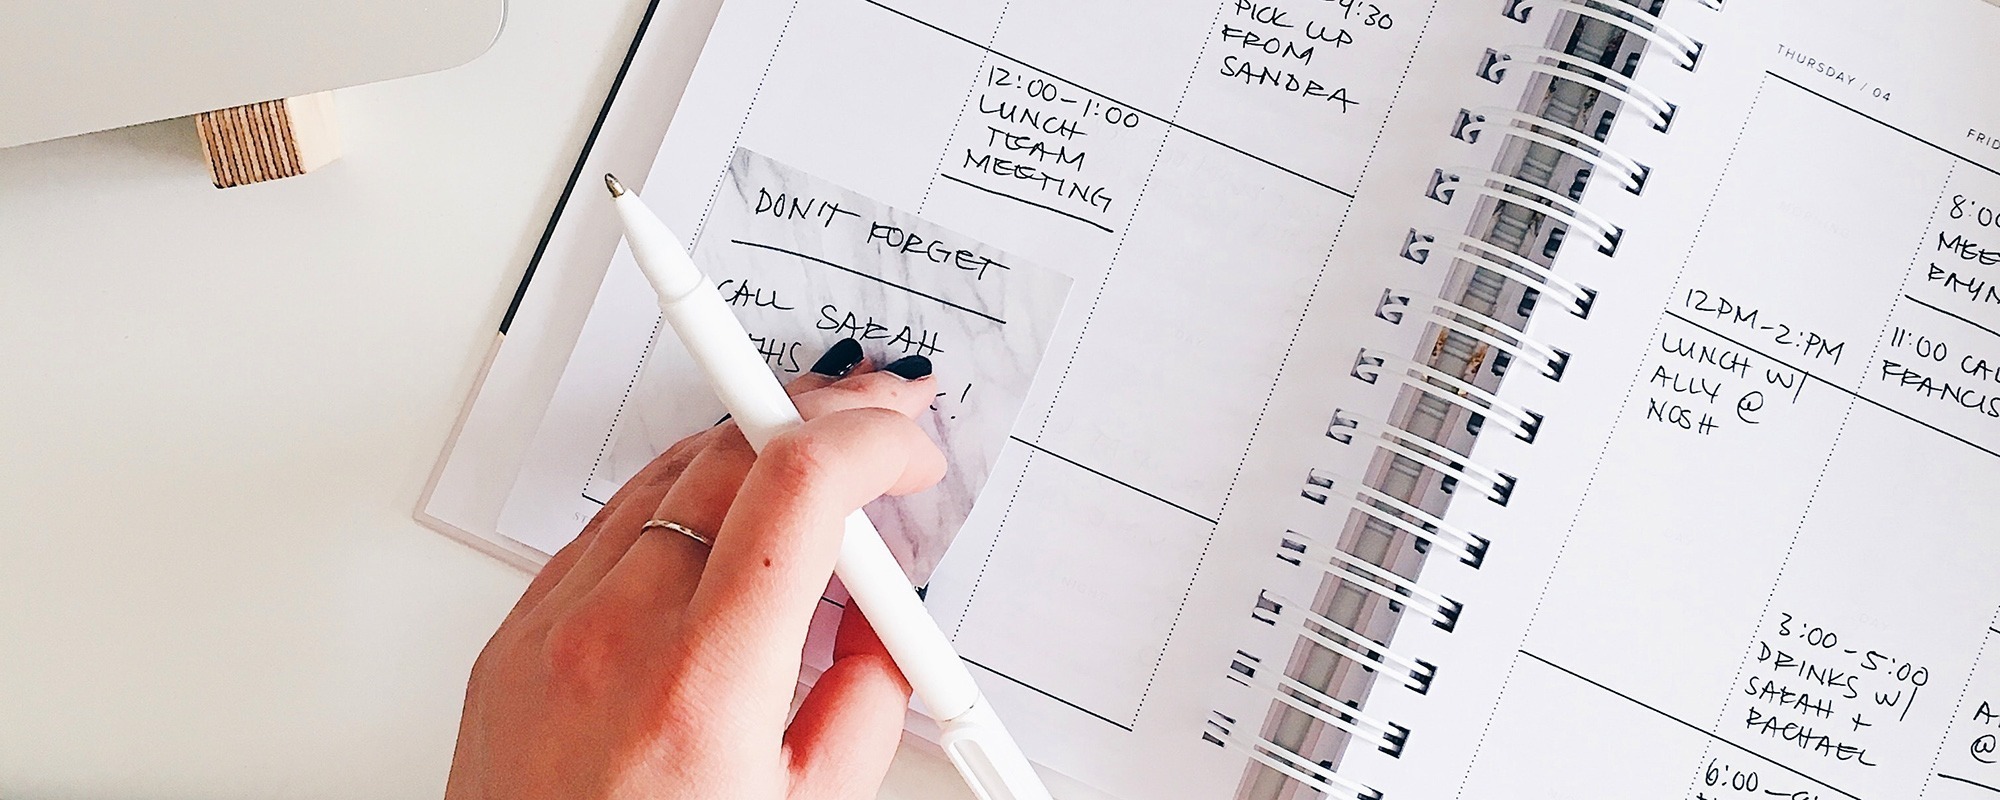 4:30
PICK UP
FROM
SANDRA
12:00-1:00
LUNCH
TEAM
MEETING
DON'T FORGET
CALL SARAH
THIS
!
THURSDAY / 04
12PM-2:PM
LUNCH W/
ALLY @
NOSH
8:00
11:00
FRANCIS
3:00-5:00
DRINKS W/
SARAH +
RACHAEL
6:00
@